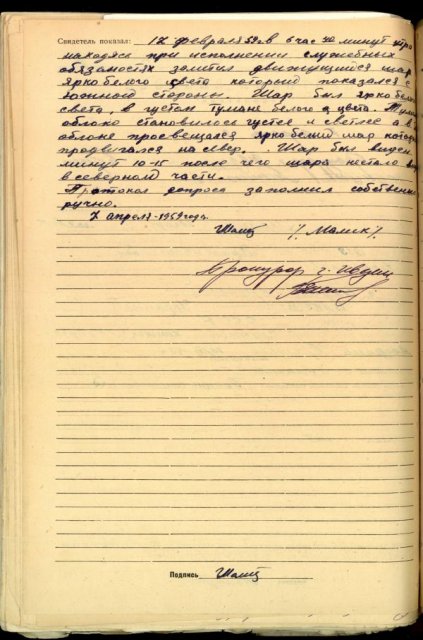 Свидетель показал: 17 февраля 59 г. в 6 час 40 минут утра
находясь при исполнении служебных
обязаностях заметил движущийся шар
ярко белого цвета который показался с
южной стороны Шар был ярко бело
света, в густом тумане белого цвета.
облако становилось густее и светлее а в
облоке просвещался ярко белый шар
продвигался на север. Шар был виден
минут 10-15 после чего шара нестало
в северной части.
Протокол допроса заполнил собственно
ручно.
7 апреля-1959 года.
прокурор г. Ивдиль
Подпись